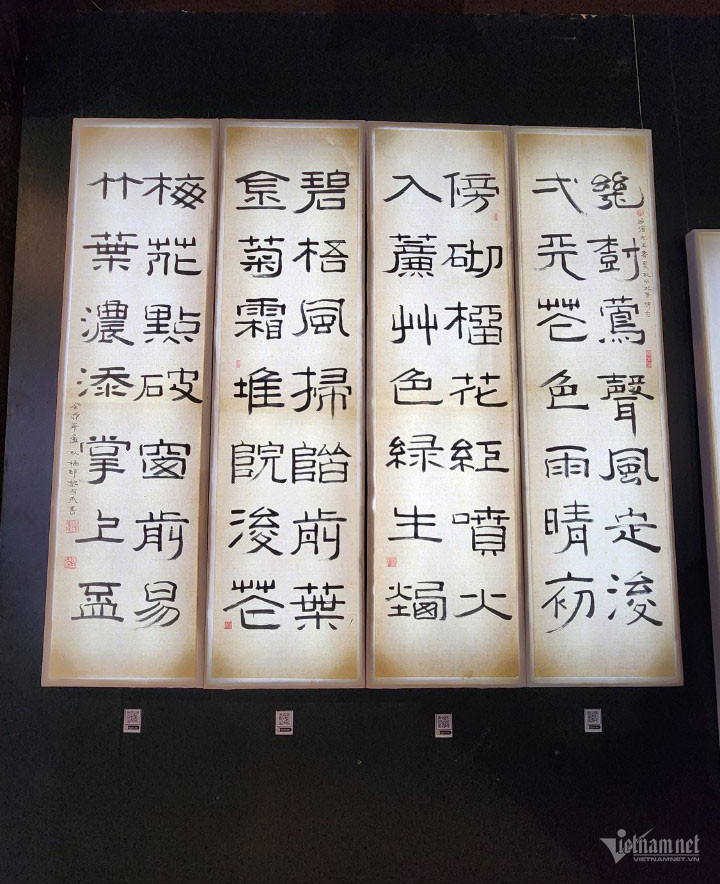 幾樹鶯聲風定後
弌天花色雨晴初
傍砌榴花紅噴火
入簾艸色綠生煙
碧梧風掃階前葉
金菊霜堆院後花
梅花點破窗前易
竹葉濃添掌上盃
癸卯年孟秋
Vietnamnet
VIETNAMNET.VN